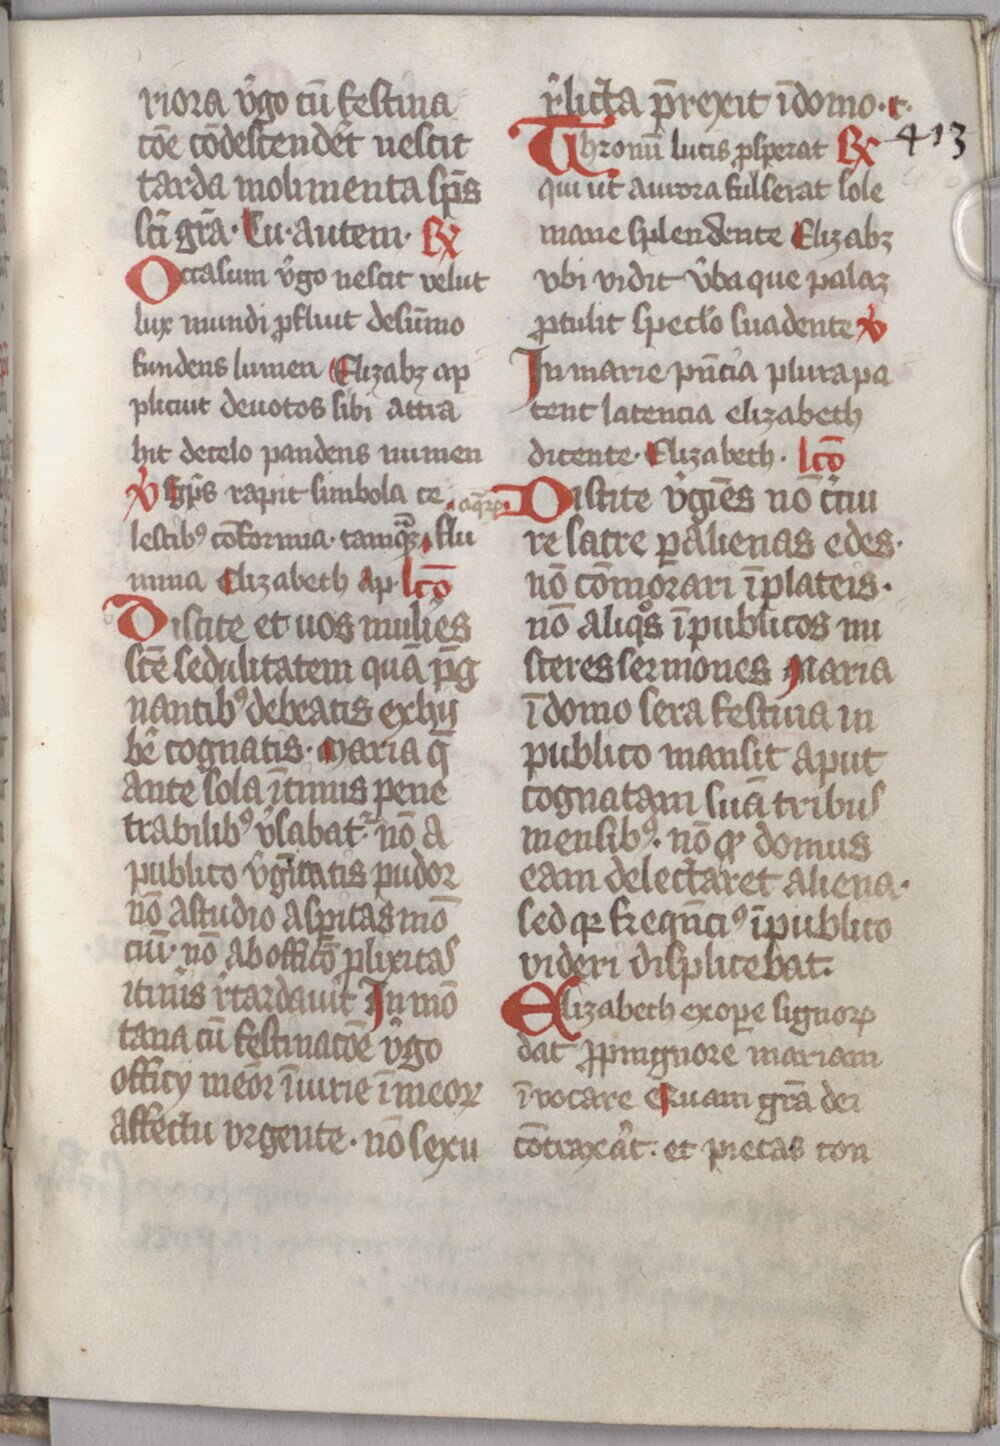 riora v̾go cū festina
cōe cōdescendēt nescit
tarda molimenta sp̄s
sc̄i gr̄a. Tu. autem. R̸
Occasum v̾go nescit velut
lux mundi ꝓfluit desūmo
fundens lumen Elizabꝫ ap
plicuit deuotos sibi attra
hit decelo pandens numen
V̸ Sp̄s rapit simbola ce
lestibꝰ cōformia. tamqꝫ flu
mina Elizabeth Ap. lc̄o
Discite et uos mulies
sc̄e sedulitatem quā p̄g
nantibꝰ debeatis exhij
bē cognatis. Maria q̄
ante sola ītimis pene
trabilibꝰ v̾sabat᷑. nō a
publico v̾gītatis pudor
nō astudio aspitas mō
ciū. nō ab officō ꝓlixitas
itin̾is r̾tardauit In mō
tana cū festinacōe v̾go
officij meōr īiurie īmeoꝝ
affectu vrgente. nō sexu
r̾licta p̄rexit īdomo. t.
413
Thronū lucis ꝓsperat R̸
qui ut aurora fulserat sole
mane splendente Elizabꝫ
vbi vidit v̾ba que palaꝫ
ꝓtulit spec̄lo suadente V̸
In marie pn̄cia plura pa
tent latencia elizabeth
dicente. Elizabeth. lc̄o
Discite v̾giēs nō c̾cū
re sacre ꝑ alienas edes.
nō cōmorari īplateis.
nō aliqͦs īpublicos mi
sceres sermones Maria
īdomo sera festina in
publico mansit aput
cognatam suā tribus
mensibꝰ. nō ꝙ domus
eam delectaret aliena.
sed qꝛ freqn̄ciꝰ īpublico
videri displicebat.
Elizabeth exope signoꝝ
dat ꝓpinignore mariam
īvocare Quam gr̄a dei
cōtraxe͛at. et pietas con